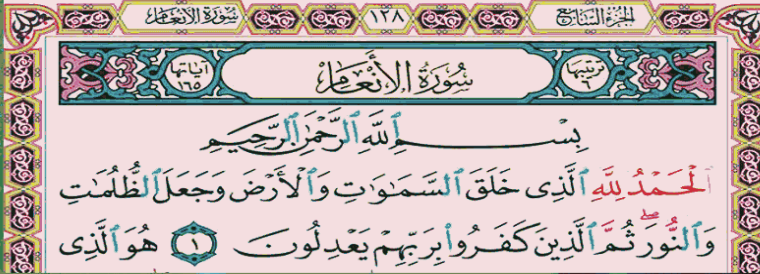 الجزء السابع ١٢٨ سورة الأنعام
ترتيبها ٦ سُورَةُ الأَنْعَامِ آياتها ١٦٥
بِسْمِ ٱللَّهِ ٱلرَّحْمَٰنِ ٱلرَّحِيمِ
ٱلْحَمْدُ لِلَّهِ ٱلَّذِى خَلَقَ ٱلسَّمَٰوَٰتِ وَٱلْأَرْضَ وَجَعَلَ ٱلظُّلُمَٰتِ
وَٱلنُّورَ ۖ ثُمَّ ٱلَّذِينَ كَفَرُوا۟ بِرَبِّهِمْ يَعْدِلُونَ ١ هُوَ ٱلَّذِى